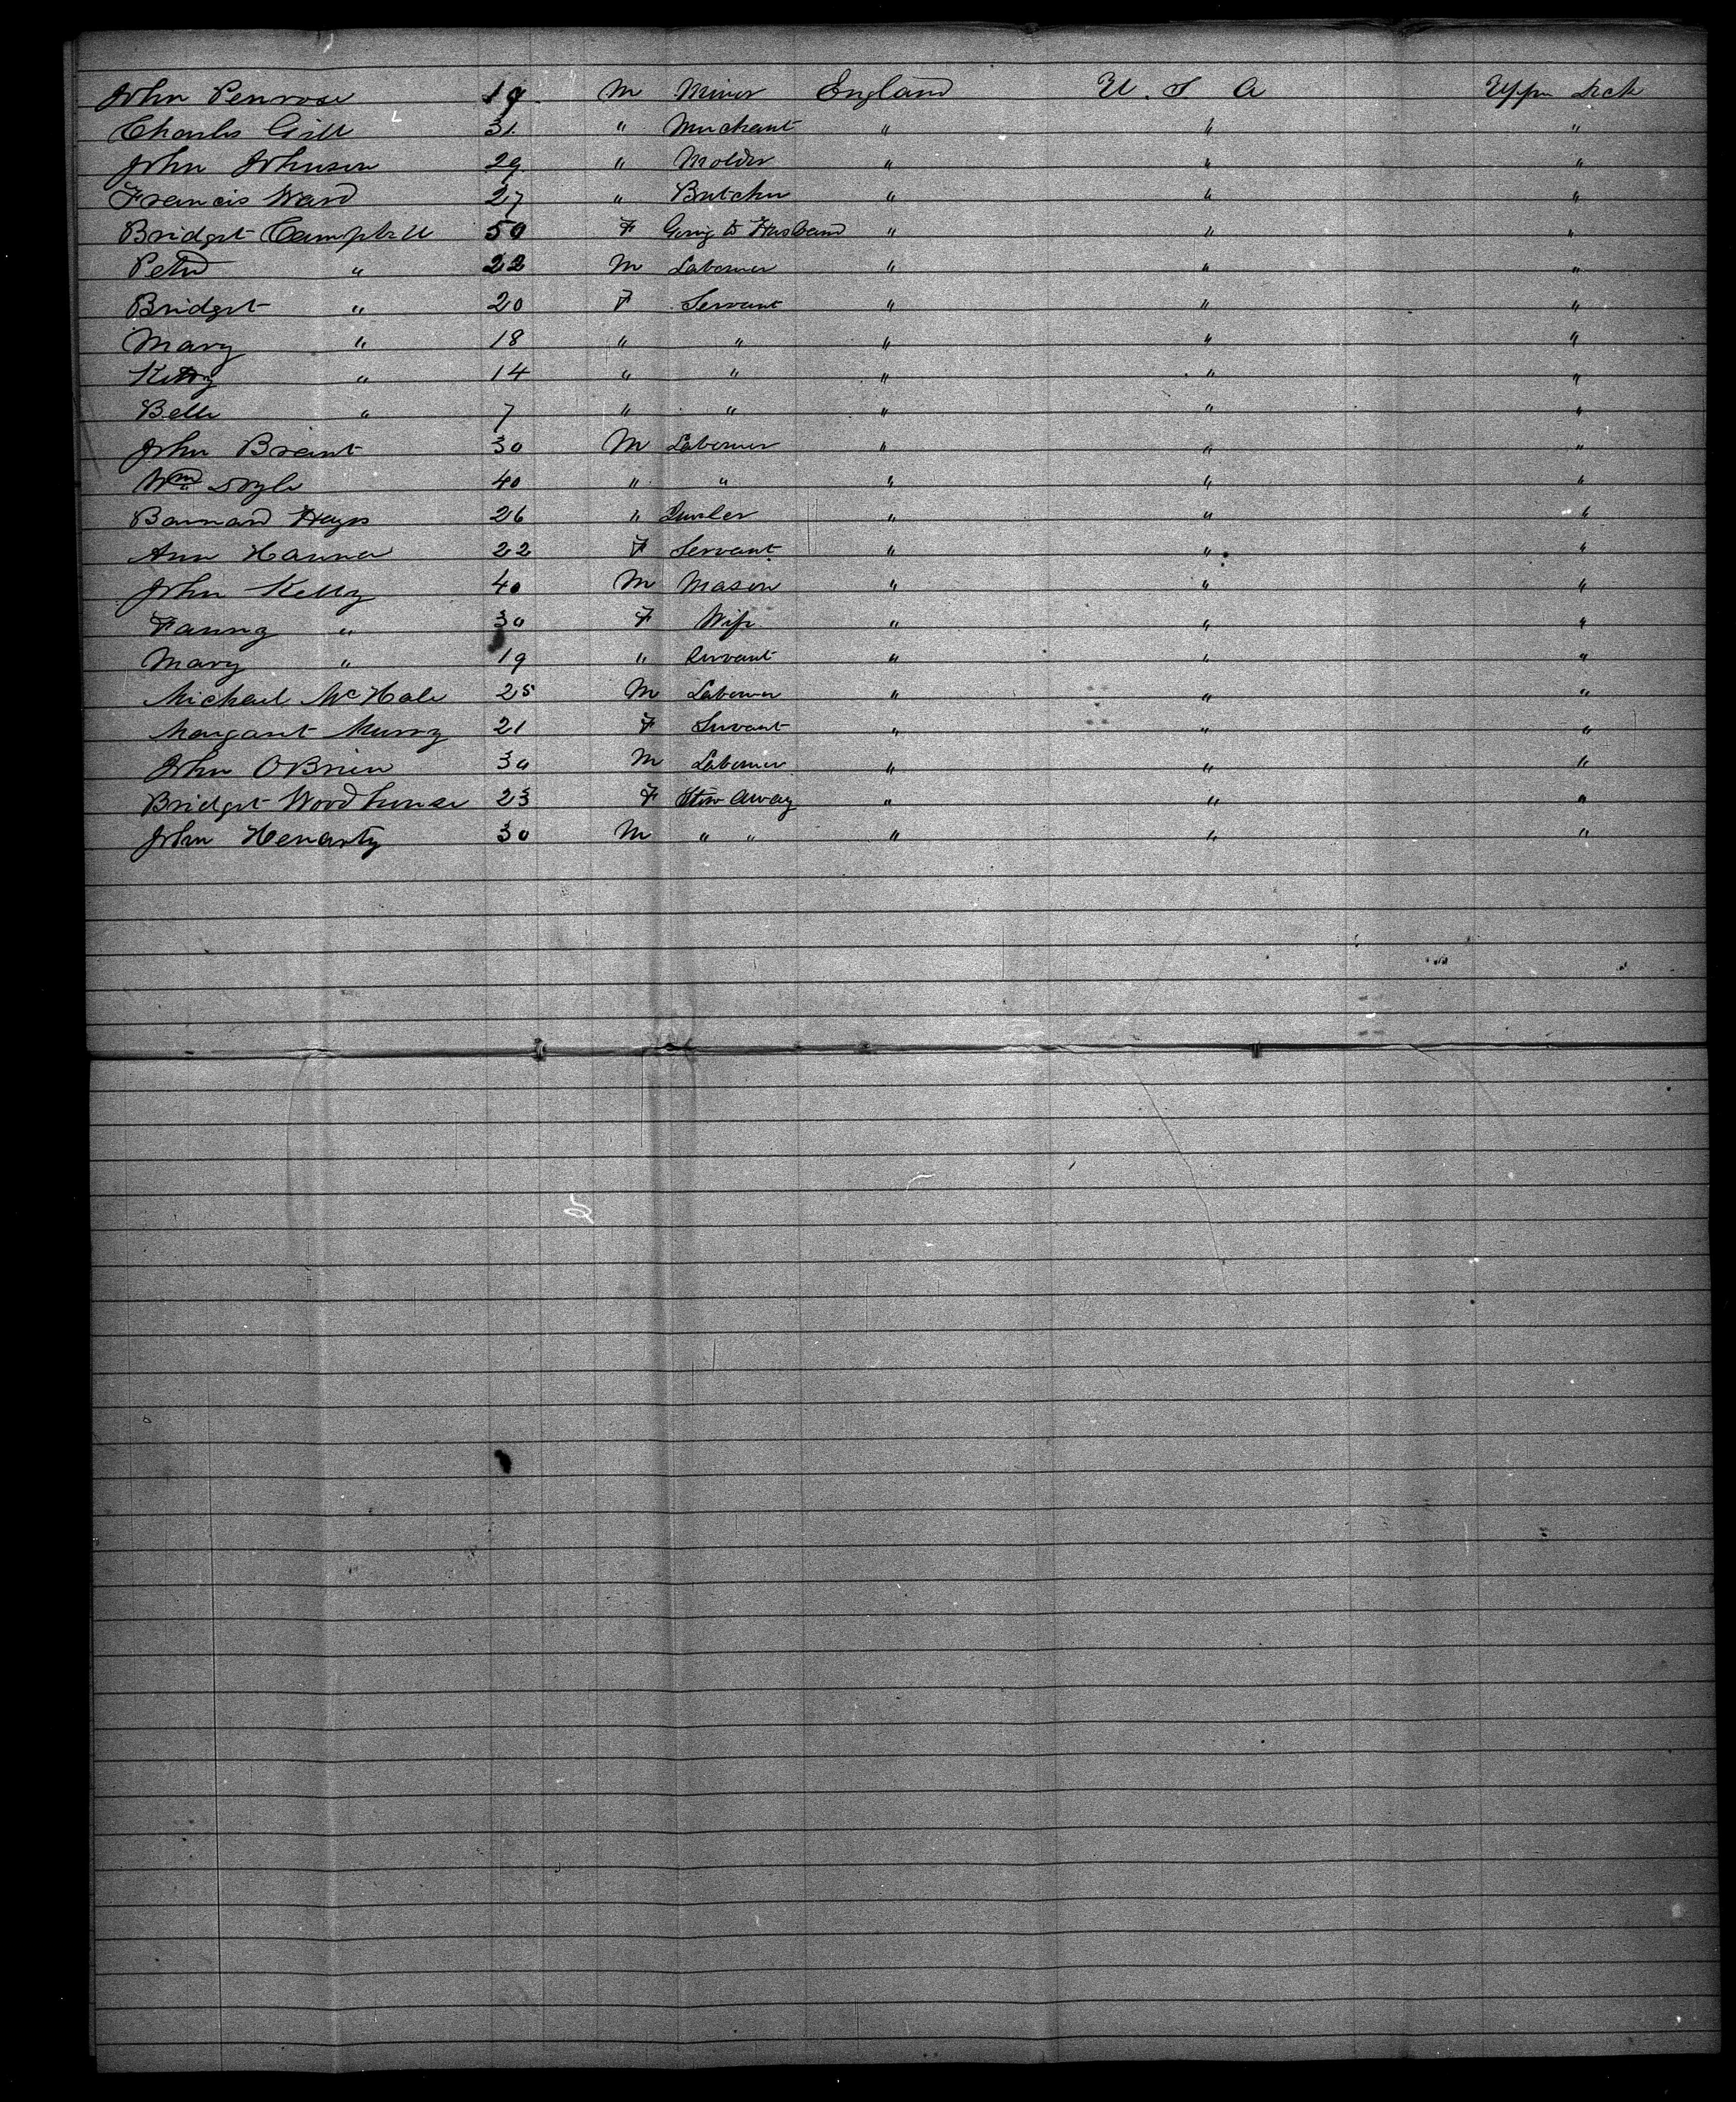 John Penrose 19 M Miner England U. S A Upper Deck
Charles Gill 31 " Merchant " " "
John Johnson 29 " Molder " " "
Francis Ward 27 " Butcher " " "
Bridget Campbell 50 F Going to Husband " " "
Peter " 22 M Laborer " " "
Bridget " 20 F Servant " " "
Mary " 18 " " " " "
Kitty " 14 " " " " "
Belle " 7 " " " " "
John Brant 30 M Laborer " " "
Wm Doyle 40 " " " " "
Barnard Hays 26 " " " "
Ann Hanna 22 F Servant " " "
John Kelly 40 M Mason " " "
Fanny " 30 F Wife " " "
Mary " 19 " Servant " " "
Michael McHale 25 M Laborer " " "
Margaret Murry 21 F Servant " " "
John OBrien 30 M Laborer " " "
Bridget Woodhouse 23 F Stow Away " " "
John Henarty 30 M " " " " "